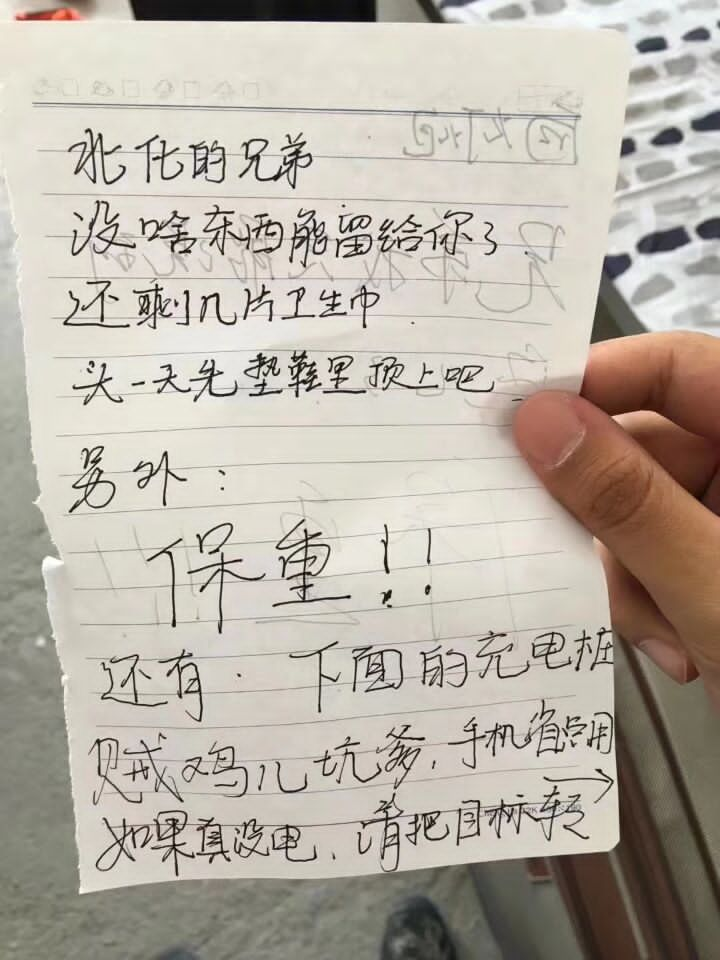 北化的兄弟
没啥东西能留给你了.
还剩几片卫生巾.
头一天先垫鞋里顶上吧
另外：
保重!!
还有. 下面的充电桩
贼鸡儿坑爹, 手机省点用
如果真没电, 请把目标转